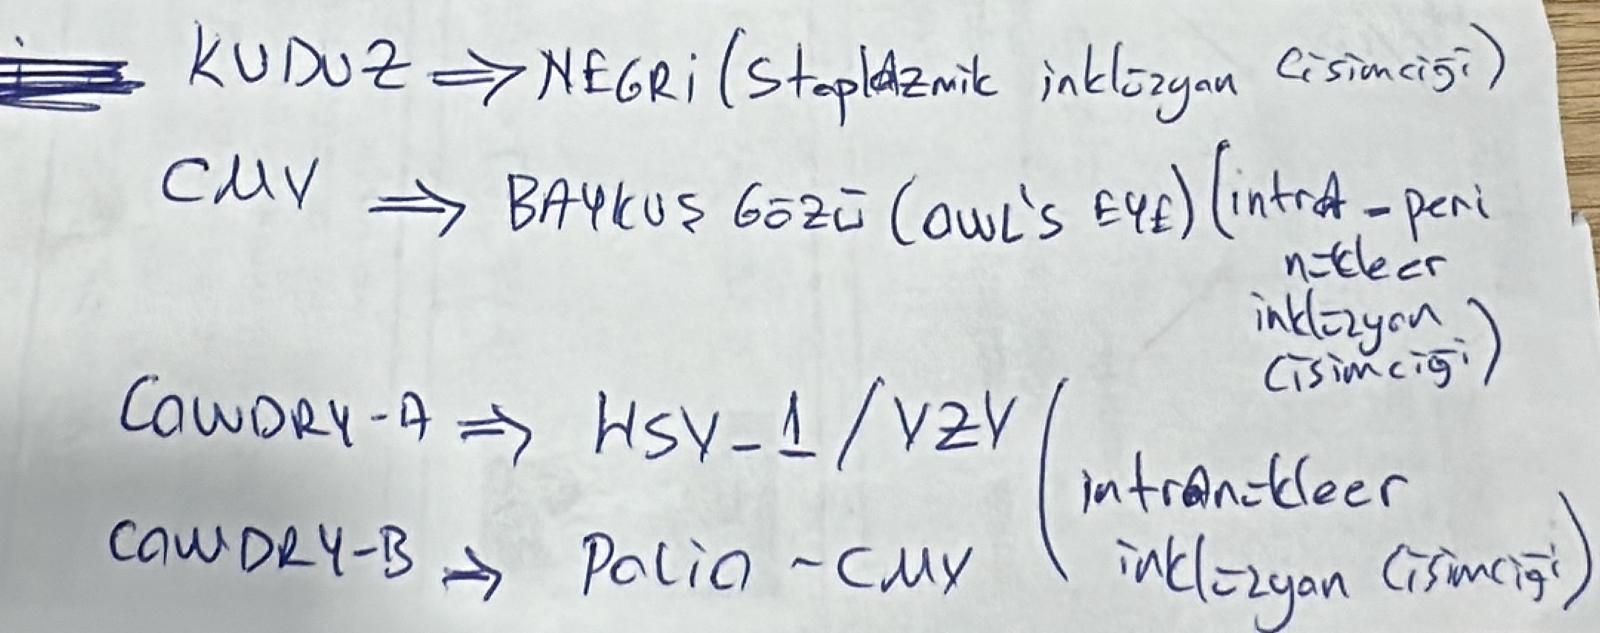 KUDUZ ⇒ NEGRi (Stoplazmik inklüzyan Cisimciği)
CMV ⇒ BAYKUŞ GÖZÜ (OWL'S EYE) (intrA - peri
nükleer
inklüzyon
Cisimciği)
COWDRY-A ⇒ HSV-1 / VZV (intranükleer
COWDRY-B ⇒ Polio - CMV inklüzyan Cisimciği)